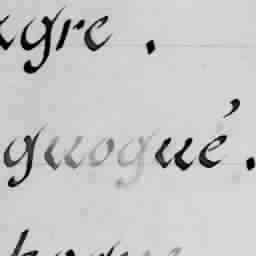 agre.
guogué.